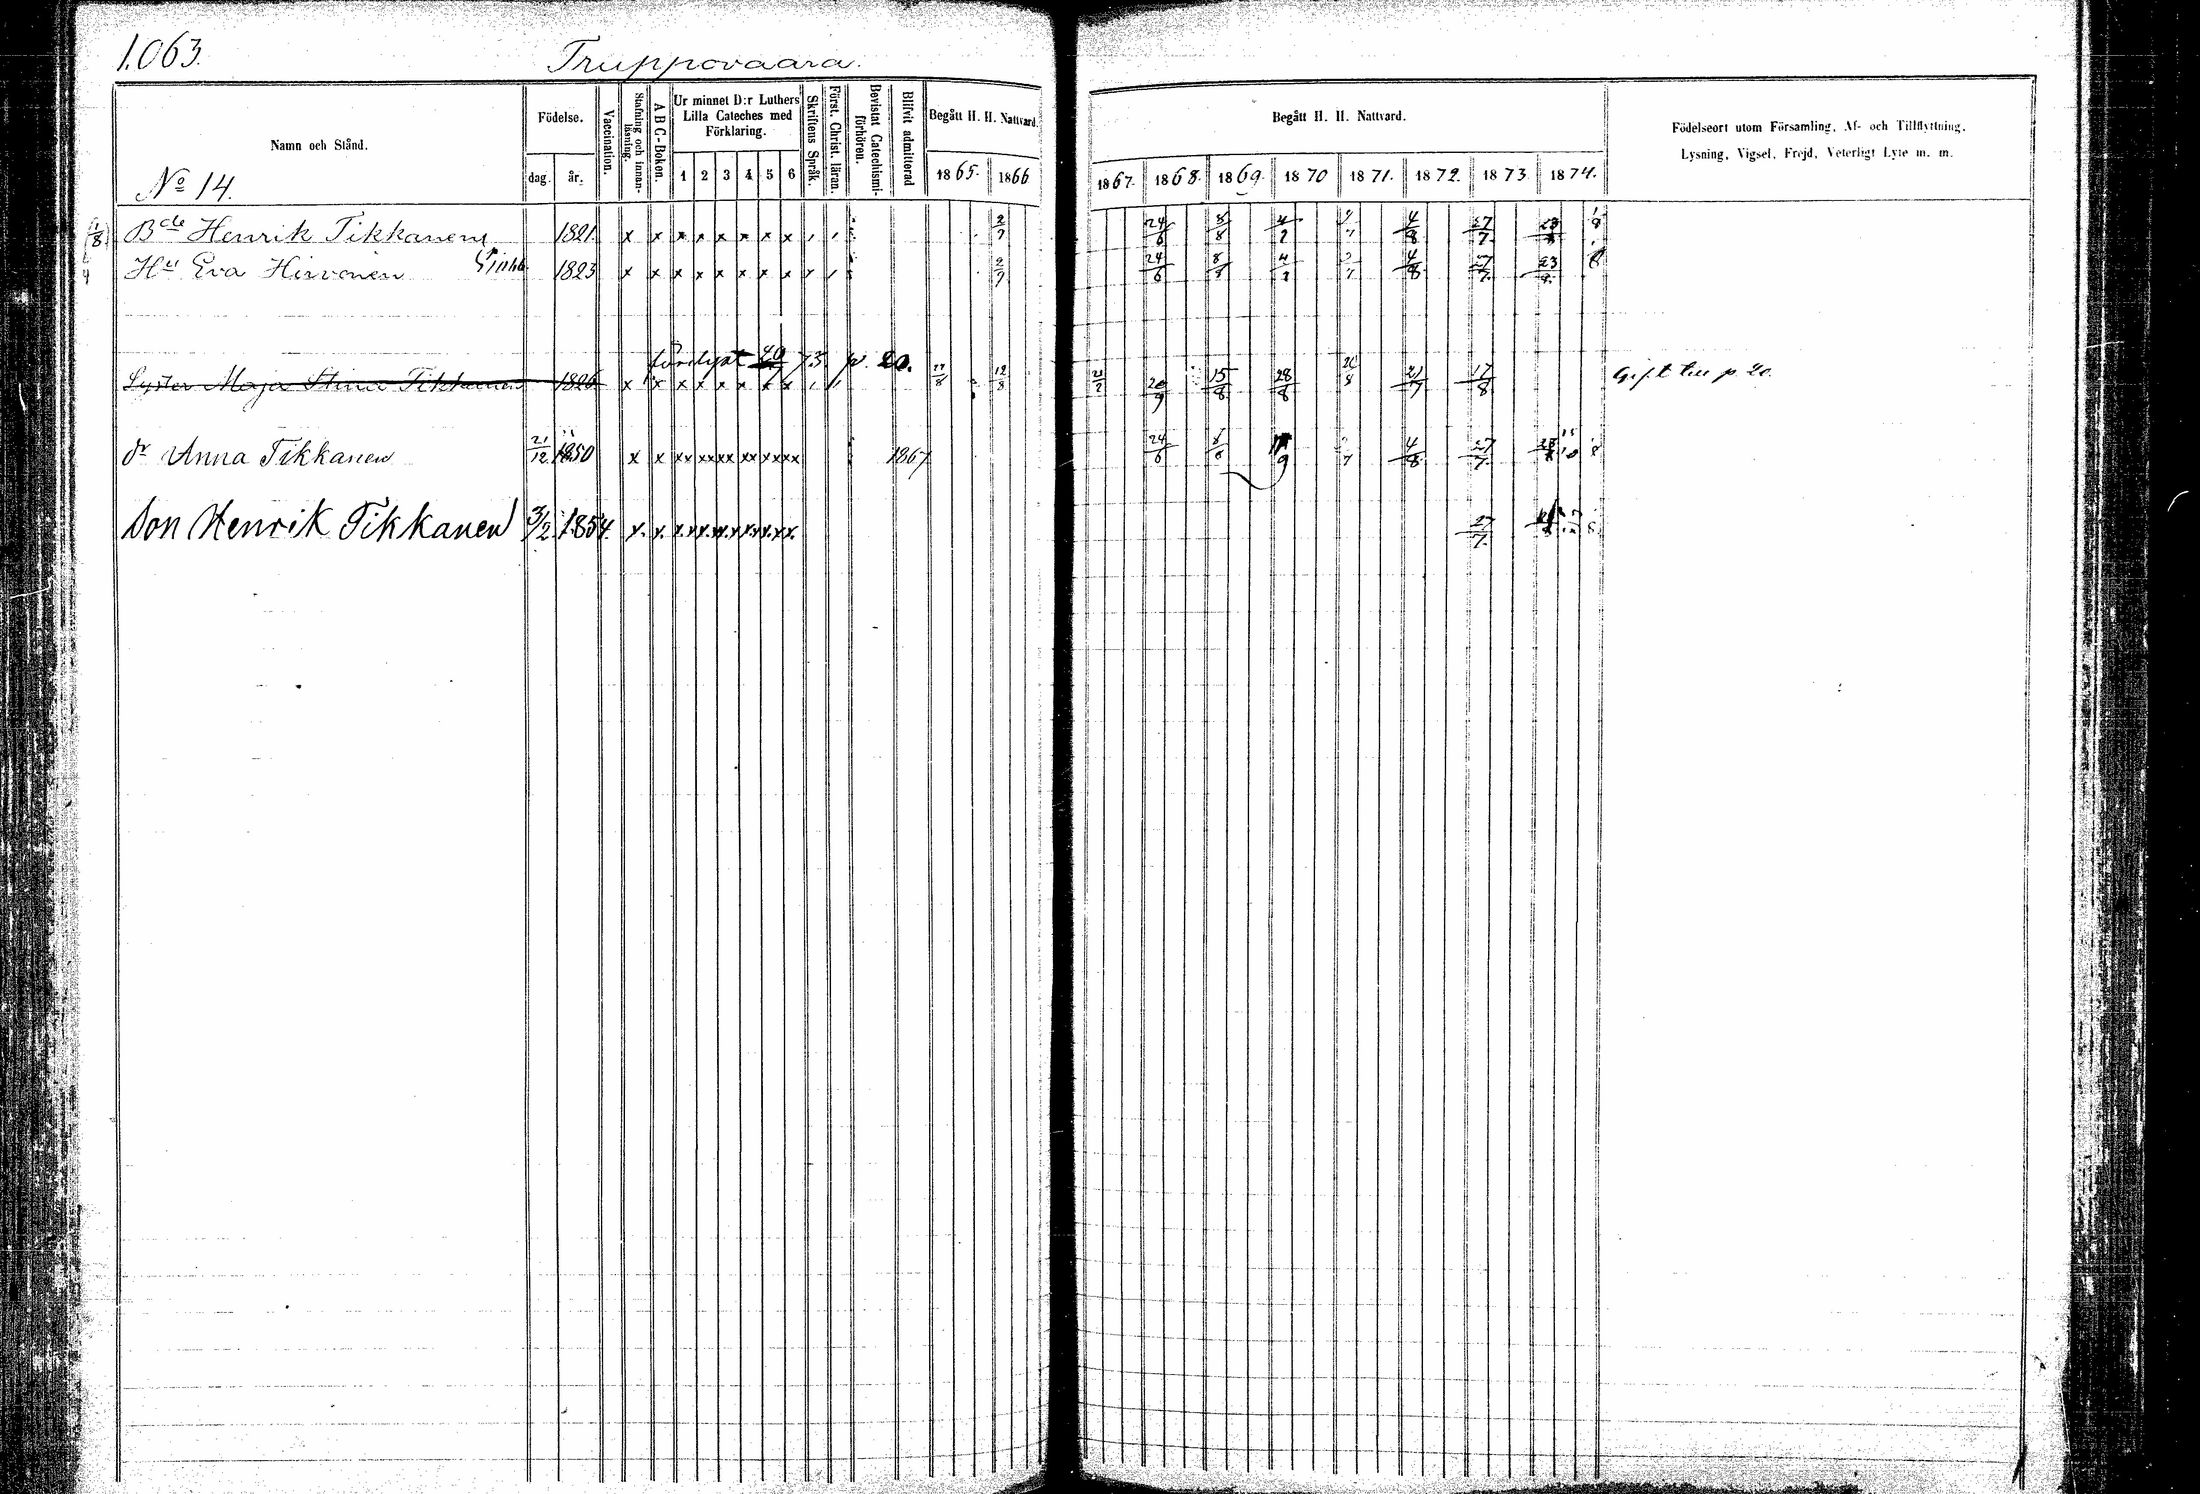 1.063.
Truppovaara.
Namn och Stånd.
No 14.
Födelse.
dag. år.
Vaccination.
Stafning och innan-läsning.
A B C-Boken.
Ur minnet D:r Luthers
Lilla Cateches med
Förklaring.
1 2 3 4 5 6
Skriftens Språk.
Först. Christ. läran.
Bevistat Catechismi-förhören.
Blifvit admitterad
Begått H. H. Nattvard.
1865. 1866
Begått H. H. Nattvard.
1867. 1868. 1869. 1870 1871. 1872. 1873. 1874.
Födelseort utom Församling, Af- och Tillflyttning,
Lysning, Vigsel, Frejd, Veterligt Lyte m. m.
Bde Henrik Tikkanen 1821. x x x x x x x x 2/7 24/6 8/8 4/8 27/7
Hu Eva Hirvonen 1823 x x x x x x x x 2/7 24/6 8/8 4/8 27/7 23
73 p. 20.
Syster Maja Stina Tikkanen 1826 x x x x x x x x 12/8 20/9 15/8 28/8 21/7 17/8 Gift till p 20.
dr Anna Tikkanen 21/12 1850 x x xx xx xx xx xx xx 1867 24/6 4/8 27/7
Son Henrik Tikkanen 3/2 1854. x. x. 27/7